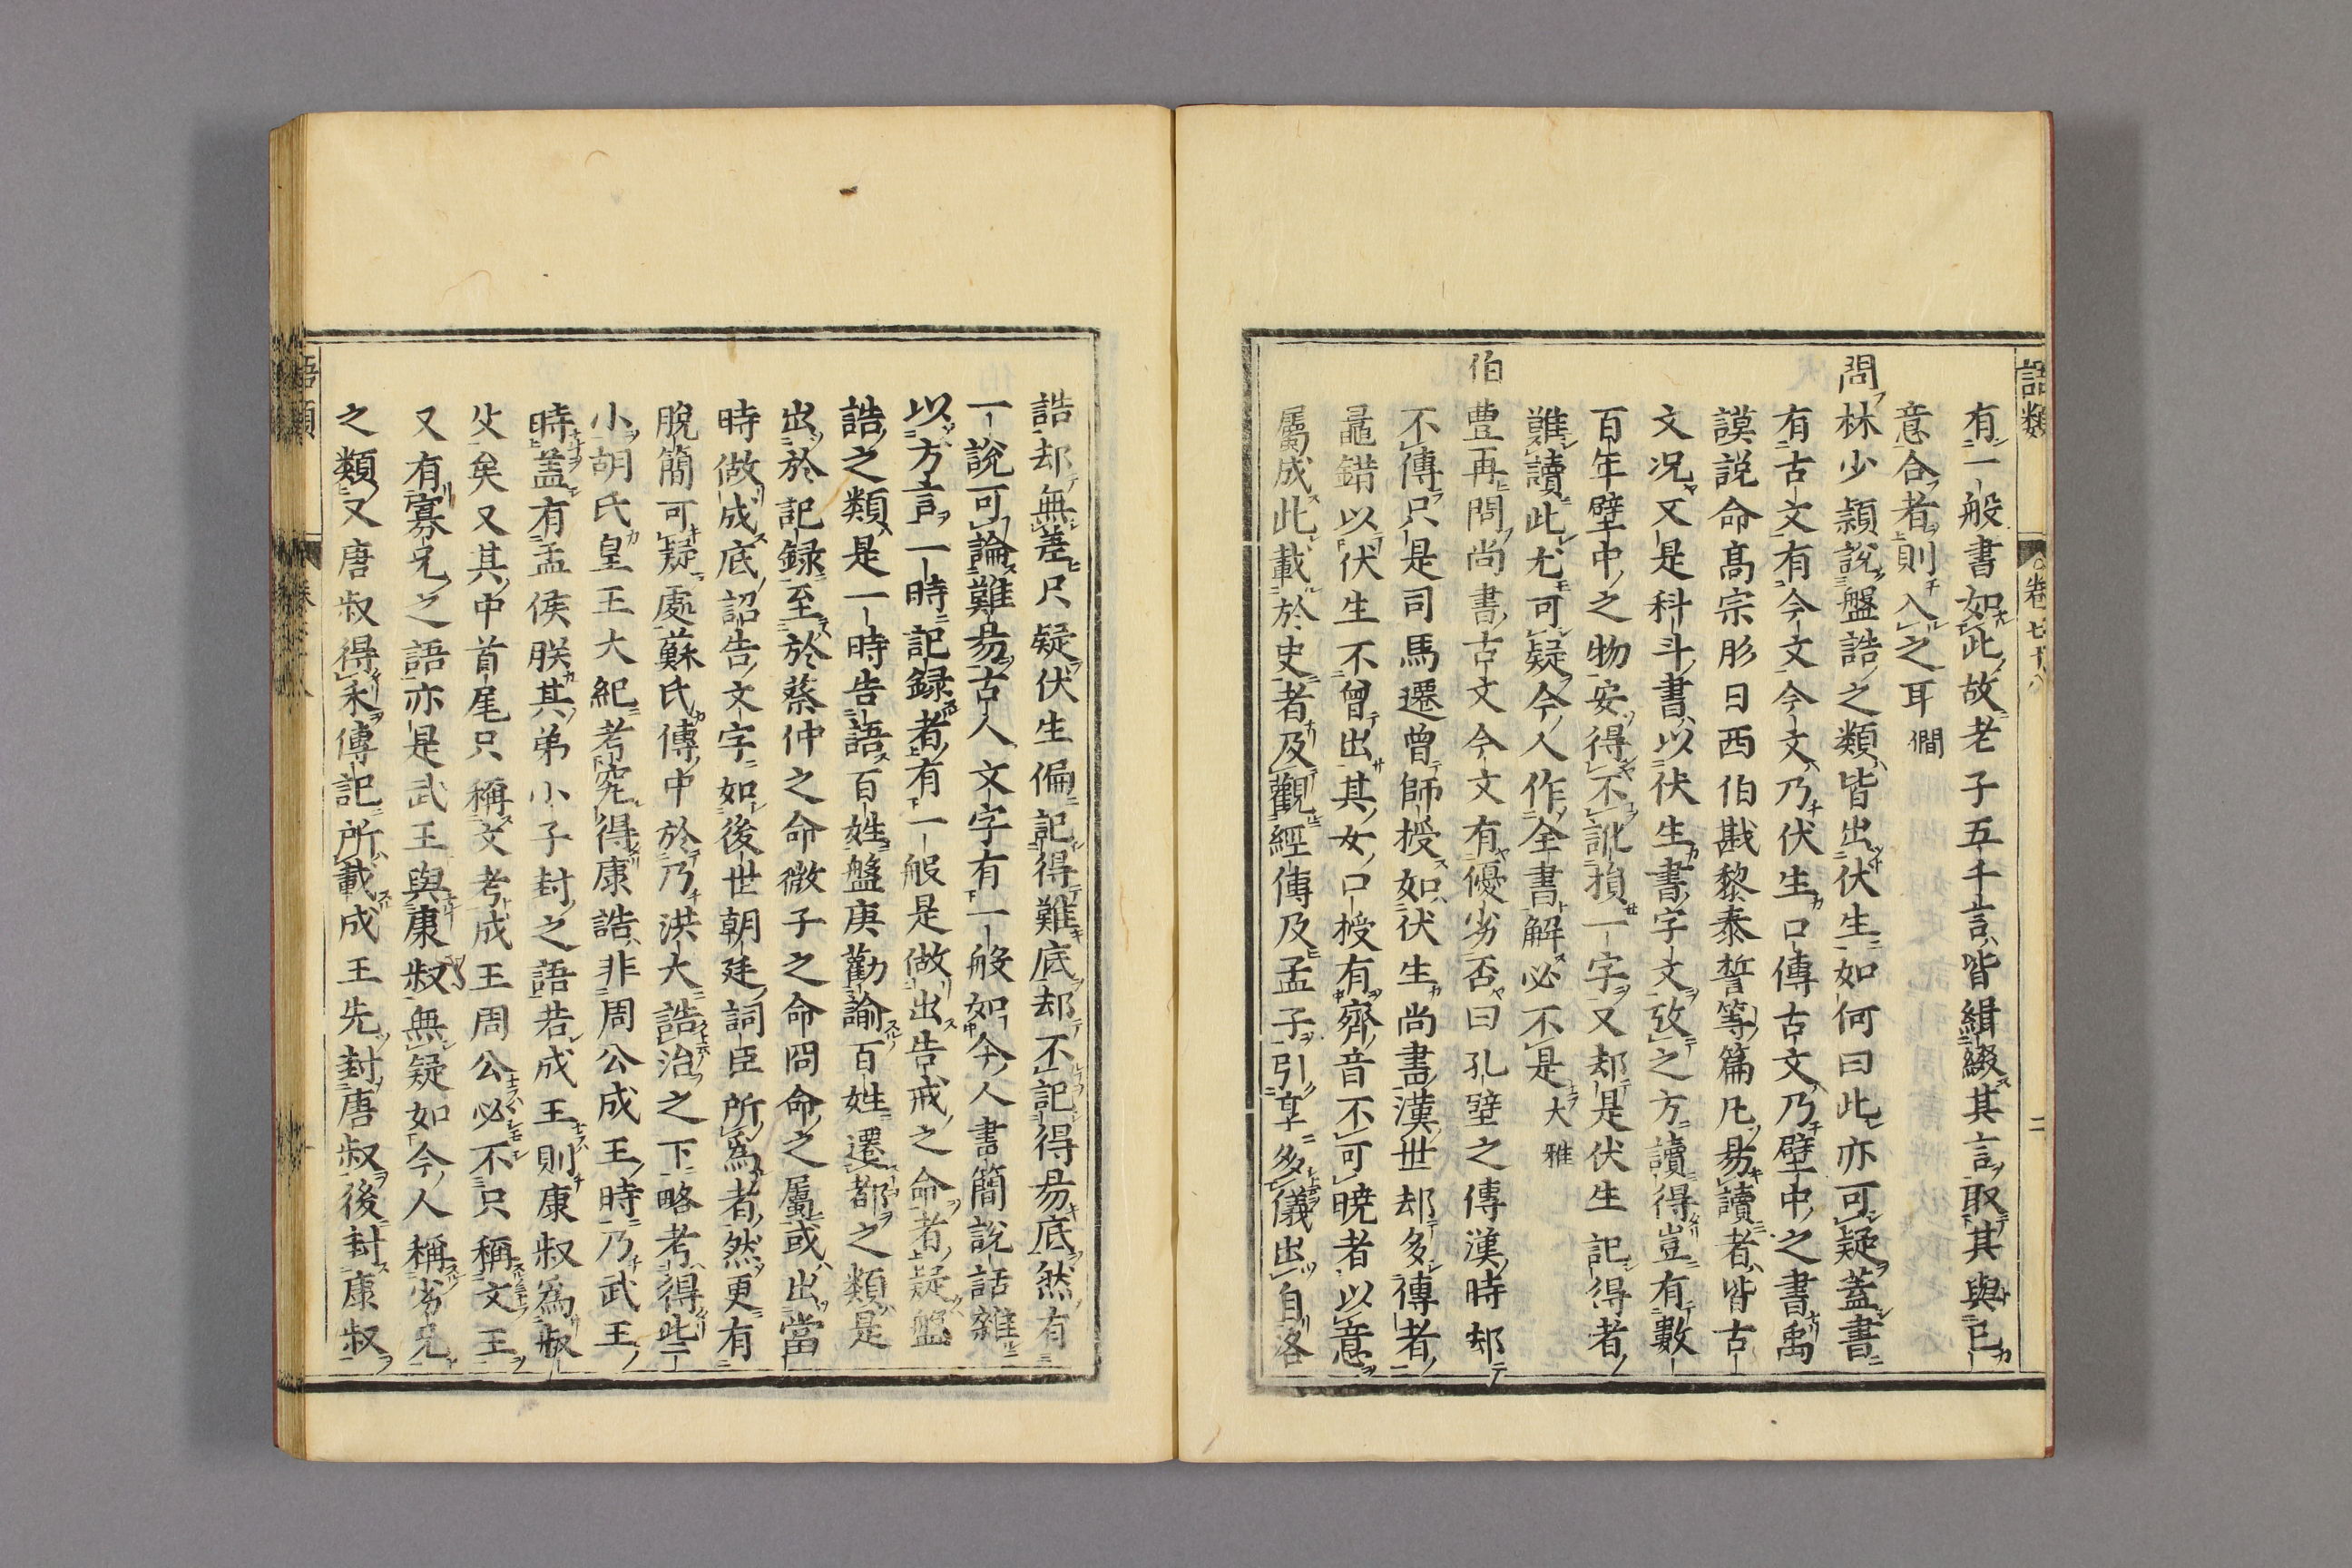 語類
卷七十八
二
有一般書如此故老子五千言皆緝綴其言取其與己
意合者則入之耳 僩
問林少頴說盤誥之類皆出伏生如何曰此亦可疑蓋書
有古文有今文今文乃伏生口傳古文乃壁中之書禹
謨說命髙宗肜日西伯戡黎泰誓等篇凡易讀者皆古
文况又是科斗書以伏生書字文攷之方讀得豈有數
百年壁中之物安得不訛損一字又却是伏生記得者
難讀此尤可疑今人作全書解必不是 大雅
伯豊再問尚書古文今文有優劣否曰孔壁之傳漢時却
不傳只是司馬遷曾師授如伏生尚書漢世却多傳者
鼂錯以伏生不曾出其女口授有齊音不可曉者以意
屬成此載於史者及觀經傳及孟子引享多儀出自各
誥却無差只疑伏生偏記得難底却不記得易底然有
一說可論難易古人文字有一般如今人書簡說話雜
以方言一時記録者有一般是做出告戒之命者疑盤
誥之類是一時告語百姓盤庚勸諭百姓遷都之類是
出於記録至於蔡仲之命微子之命冏命之屬或出當
時做成底詔告文字如後世朝廷詞臣所爲者然更有
脫簡可疑處蘇氏傳中於乃洪大誥治之下略考得些
小胡氏皇王大紀考究得康誥非周公成王時乃武王
時盖有孟侯朕其弟小子封之語若成王則康叔爲叔
父矣又其中首尾只稱文考成王周公必不只稱文王
又有寡兄之語亦是武王與康叔無疑如今人稱劣兄
之類又唐叔得禾傳記所載成王先封唐叔後封康叔